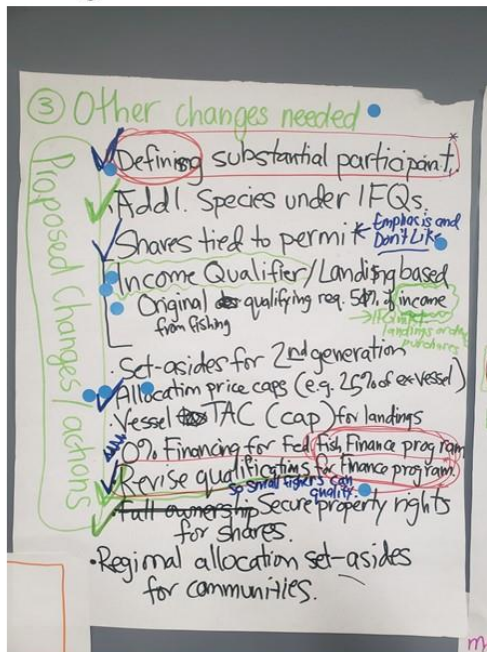 ③ Other changes needed
Proposed Changes/actions
Defining substantial participant. *
Add'l. Species under IFQs.
Shares tied to permit * Emphasis and
Don't Like
Income Qualifier/Landing based
Original qualifying req. 50% of income
from fishing
→ IFQ
landings or
purchases
Set-asides for 2nd generation
Allocation price caps (e.g. 25% of ex-vessel)
Vessel TAC (cap) for landings
0% Financing for Fed fish, Finance program
Revise qualifications for Finance program.
so small fishers can
qualify.
Full ownership Secure property rights
for shares.
• Regional allocation set-asides
for communities.